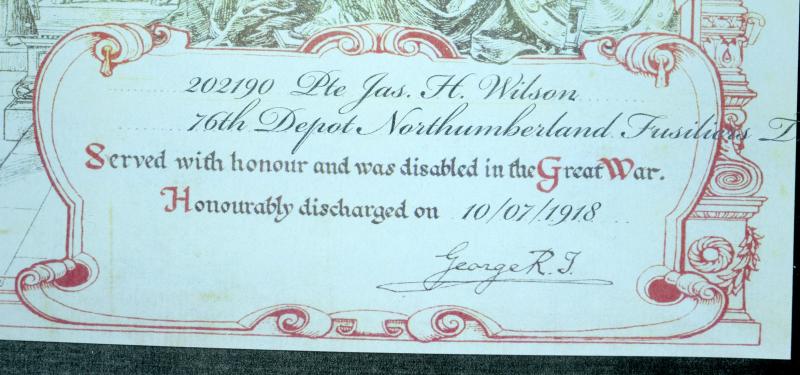 202190 Pte Jas. H. Wilson
76th Depot Northumberland Fusiliers
Served with honour and was disabled in the Great War.
Honourably discharged on 10/07/1918
George R. I.